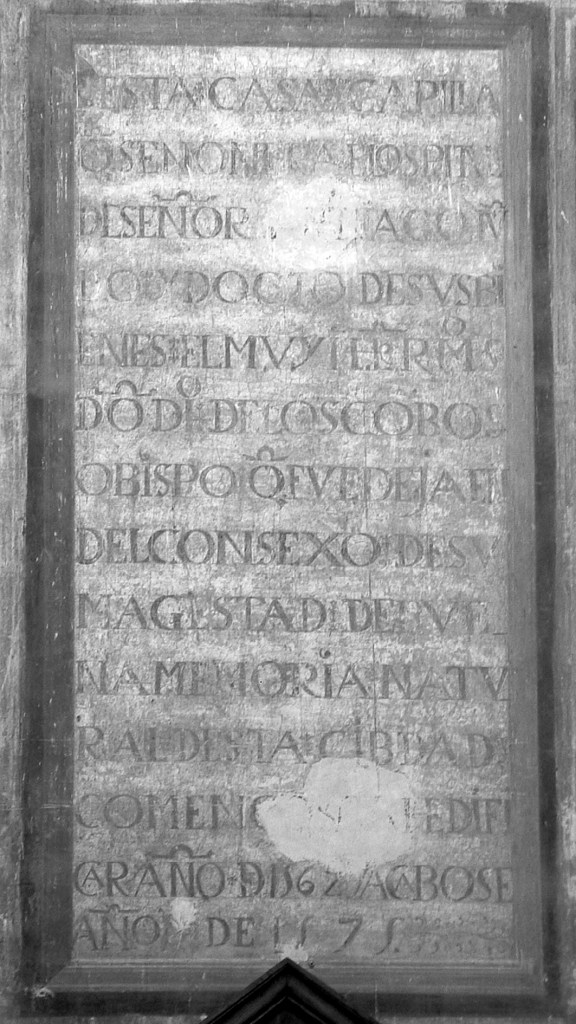 ESTA CASA Y CAPILLA
Q̃ SE NONBRA HOSPITAL
DE SEÑOR SANTIAGO COM
PRO Y DOCTO DE SUS BI
ENES EL MVY ILLE R MO S
DÕ D° DE LOS COBOS
OBISPO Q̃ FVE DE JAEN
DEL CONSEXO DE SV
MAGESTAD DE BVE
NA MEMORIA NATV
RAL DESTA CIBDAD
COMENÇ EDIFI
CAR AÑO D 1562 ACABOSE
AÑO DE 1575